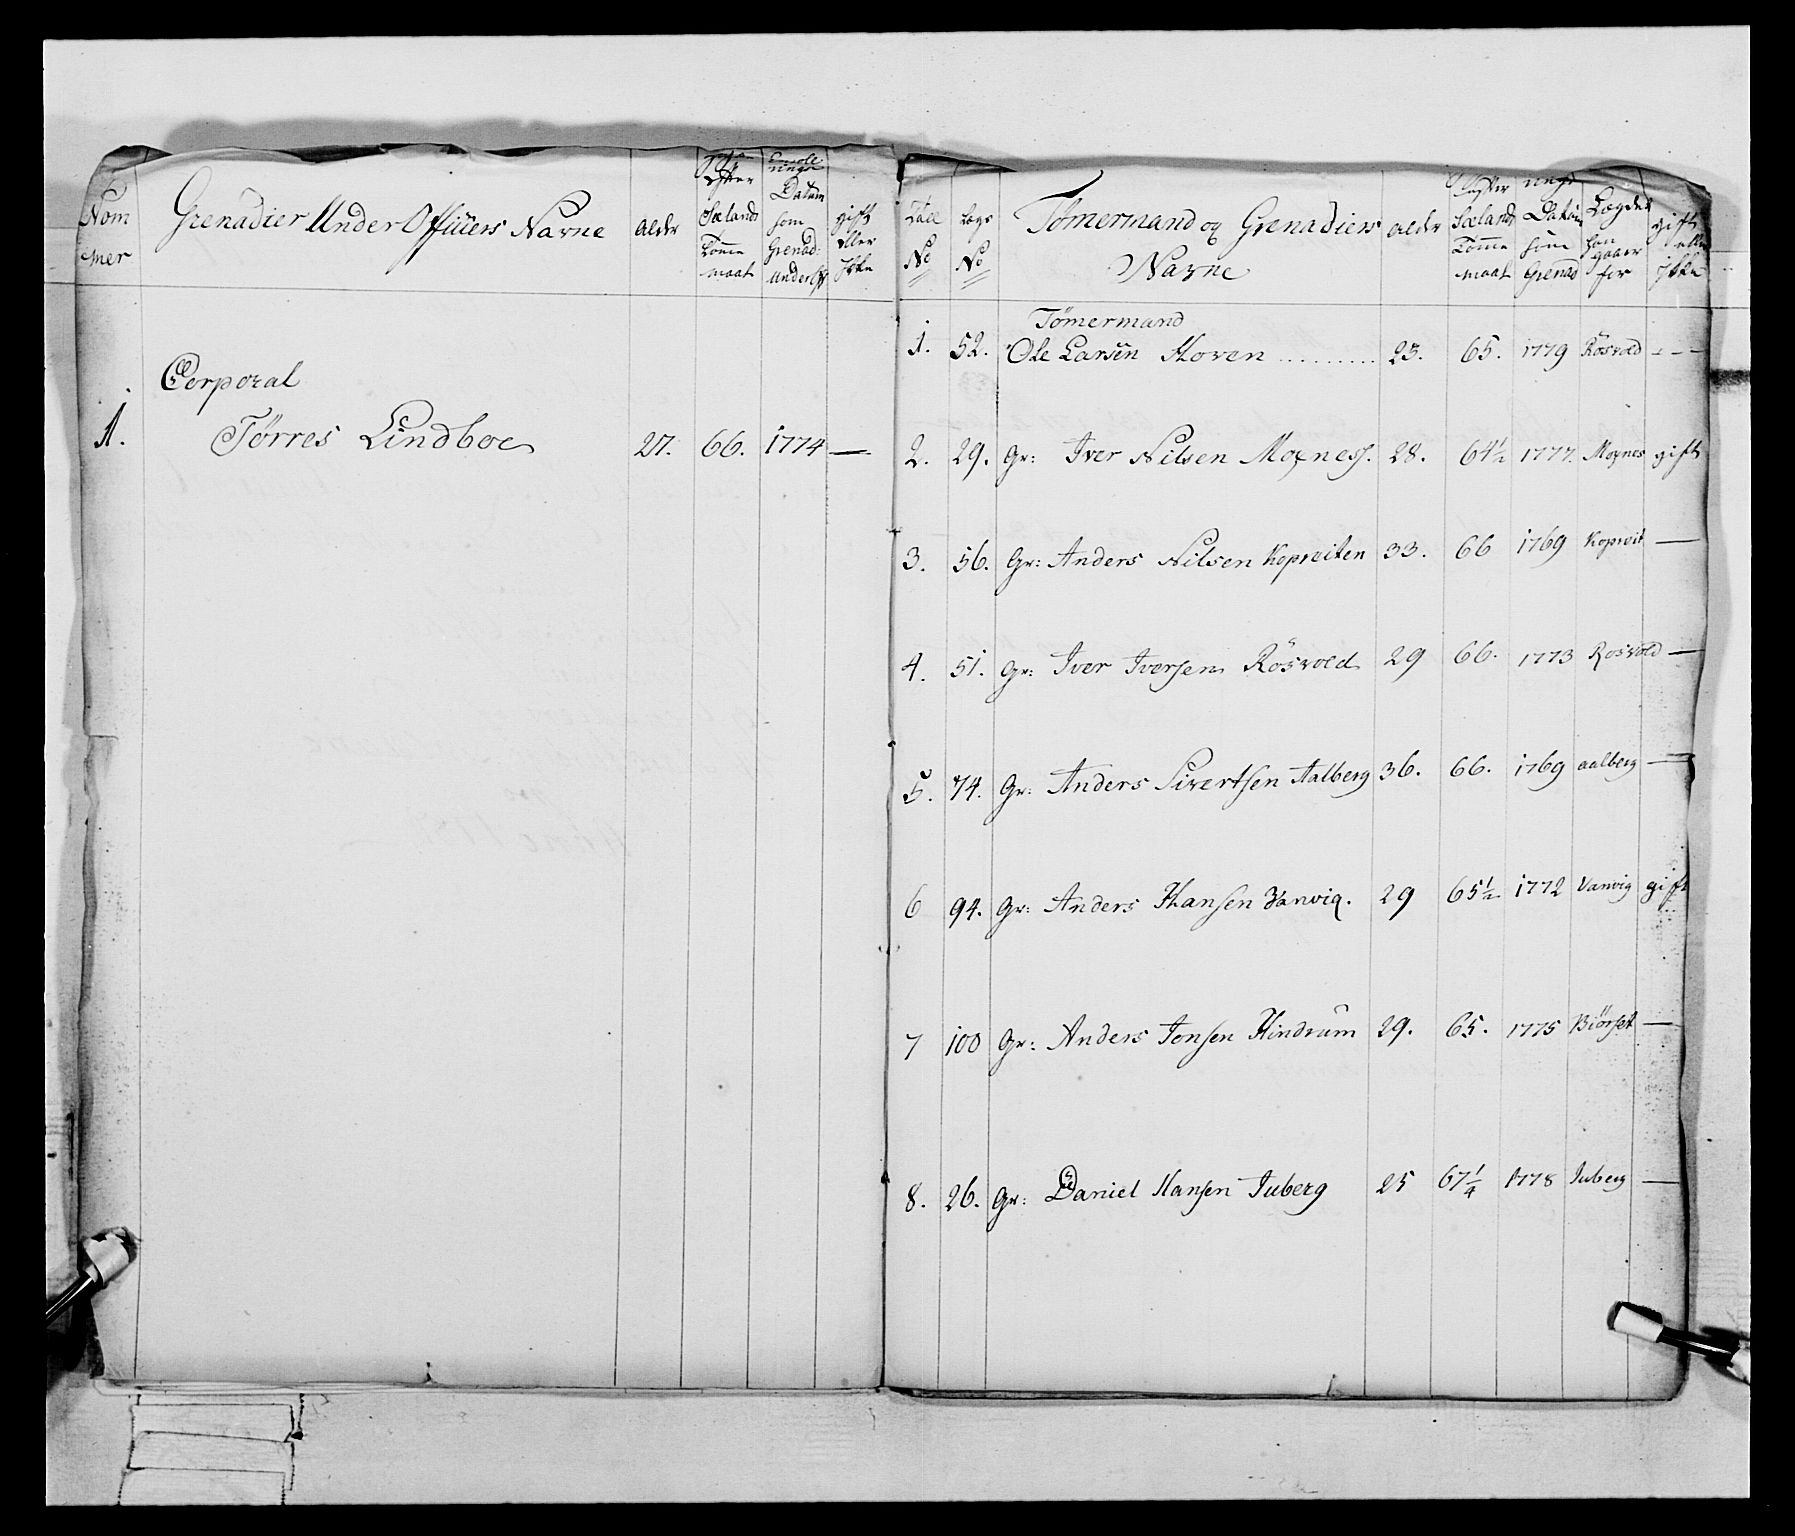 Nom
mer
Grenadier Under Officers Navne
Alder
efter
Sælands
Tomme
maat
Datum
som
Grenad:
underoff
gift
eller
Ikke
Corporal
1. Tørres Lindboe 27. 66. 1774 —
Tall
No
Legs
No
Tømermand og Grenadiers
Navne
alder
efter
Sælands
Tomme
maat
Datum
som
Grenad
Lægder
han
gaaer
for
gift
eller
ikke
Tömermand
1. 52. Ole Larsen Hoven ......... 23. 65. 1779 Rösvold - - -
2. 29. Gr: Iver Nilsen Moxness. 28. 64½ 1777. Moxnes gift
3. 56. Gr: Anders Nilsen Kopreiten 33. 66 1769 Kopreit —
4. 51. Gr: Iver Iversen Rösvold 29 66. 1773 Rosvold —
5. 74. Gr: Anders Sivertsen Aalberg 36. 66. 1769 aalberg —
6 94. Gr: Anders Hansen Vanvig. 29 65½ 1772 Vanvig gift
7 100 Gr: Anders Jonsen Hindrum 29. 65. 1775 Biörset —
8. 26. Gr: Daniel Hansen Juberg 25 67¼ 1778 Juberg —